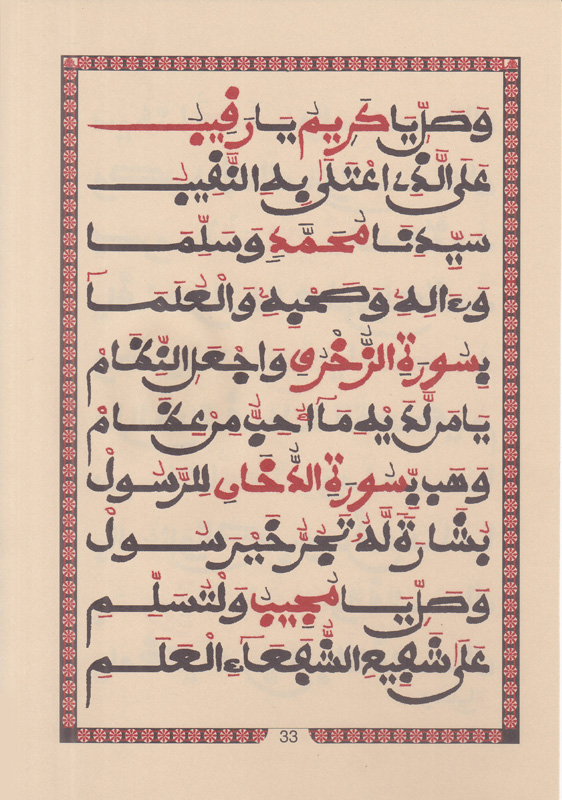 وَصَلِّ يَا كَرِيمُ يَا رَقِيبُ
عَلَى الَّذِي اعْتَلَى بِهِ النَّقِيبُ
سَيِّدِنَا مُحَمَّدٍ وَسَلِّمَا
وَءَالِهِ وَصَحْبِهِ وَالْعُلَمَا
بِسُورَةِ الزُّخْرُفِ وَاجْعَلِ النِّظَامْ
يَا مَن لَّدَيْهِ مَا أُحِبُّ مِنْ عِظَامْ
وَهَب بِّسُورَةِ الدُّخَانِ لِلرَّسُولْ
بِشَارَةً لَّهُ تَجُرُّ خَيْرَ سُولْ
وَصَلِّ يَا مُجِيبُ وَلْتُسَلِّمِ
عَلَى شَفِيعِ الشُّفَعَاءِ الْعَلَمِ
33